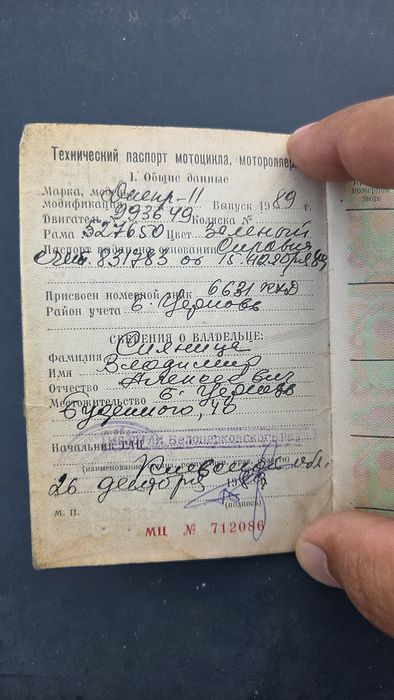 Технический паспорт мотоцикла, мотороллер
1. Общие данные
Марка, мод Днепр-11
модификация Выпуск 1989 г.
Двигатель 993649 Коляска №
Рама 327650 Цвет Зеленый
Паспорт выдан на основании Справка
счет. 831783 от 15. ноября 89
Присвоен номерной знак 6631 ККД
Район учета б. Церковь
СВЕДЕНИЯ О ВЛАДЕЛЬЦЕ:
Фамилия
Имя Владимир
Отчество
Местожительство б. Церковь
Буденного, 40
Начальник ГАИ Белоцерковского
Киевской обл.
26 декабря 1989
М. П. (подпись)
МЦ № 712086